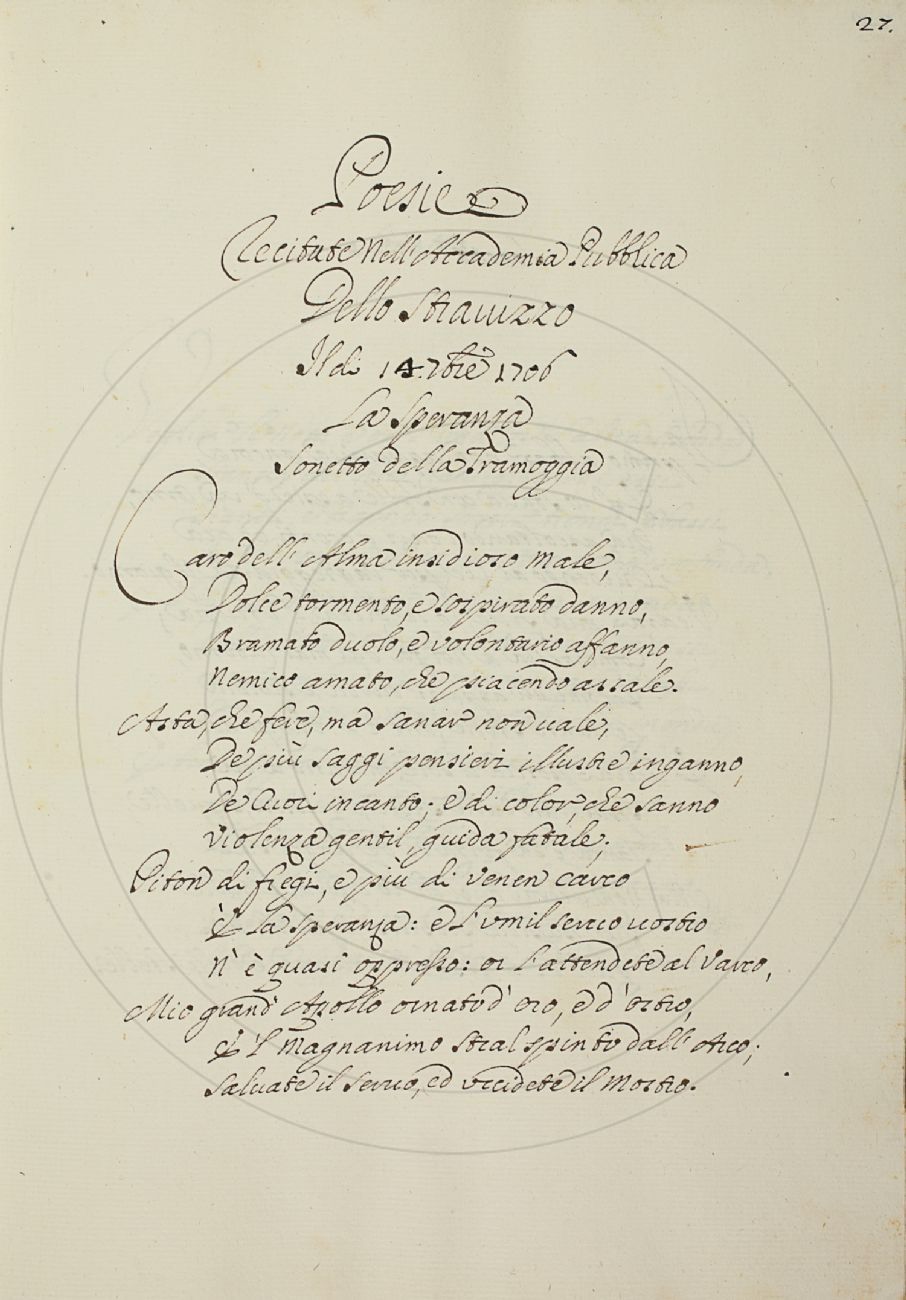 27.
Poesie
Recitate Nell' Accademia Pubblica
Dello Strauizzo
Il di 14. 7bre 1706
La Speranza
Sonetto della Tramoggia
Caro dell' Alma insidioso male,
Dolce tormento, e sospirato danno,
Bramato duolo, e volontario affanno,
Nemico amato, che piacendo assale.
Asta, che fere, ma sanar non uale,
De più saggi pensieri illustre inganno,
De Cuori incanto; e di color, che sanno
Violenza gentil, guida fatale;
Piton di fregi, e più di venen carco
È La Speranza: e l'vmil seruo uostro
N' è quasi oppresso: or l'attendete al Varco,
Mio grand' Apollo ornato d' oro, e d' ostro,
E 'l Magnanimo stral spinto dall' Arco;
Saluate il seruo, ed vccidete il Mostro.